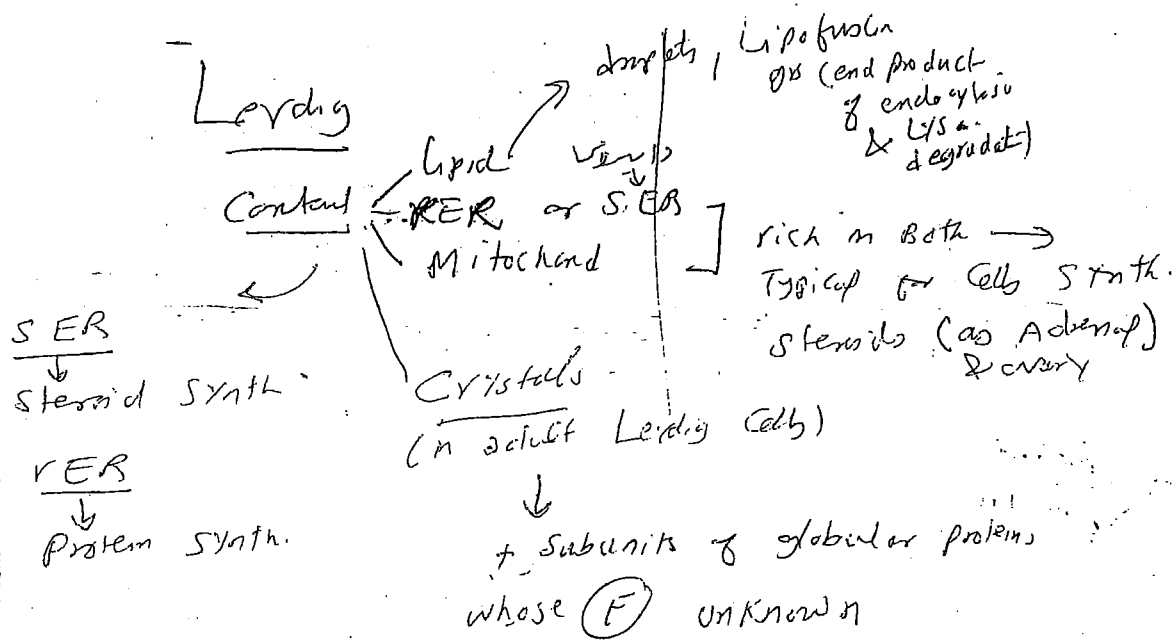 Leydig
Content
lipid
droplets, Lipofuscin
grs (end product
of endocytosis
& Lys.
degradat.)
RER or SER
Mitochond
rich in Both →
Typical for Cells Synth.
steroids (as Adrenal)
& ovary
SER
↓
Steroid Synth.
rER
↓
Protein Synth.
Crystals
(in adult Leydig Cells)
↓
+ Subunits of globular proteins
whose F unknown